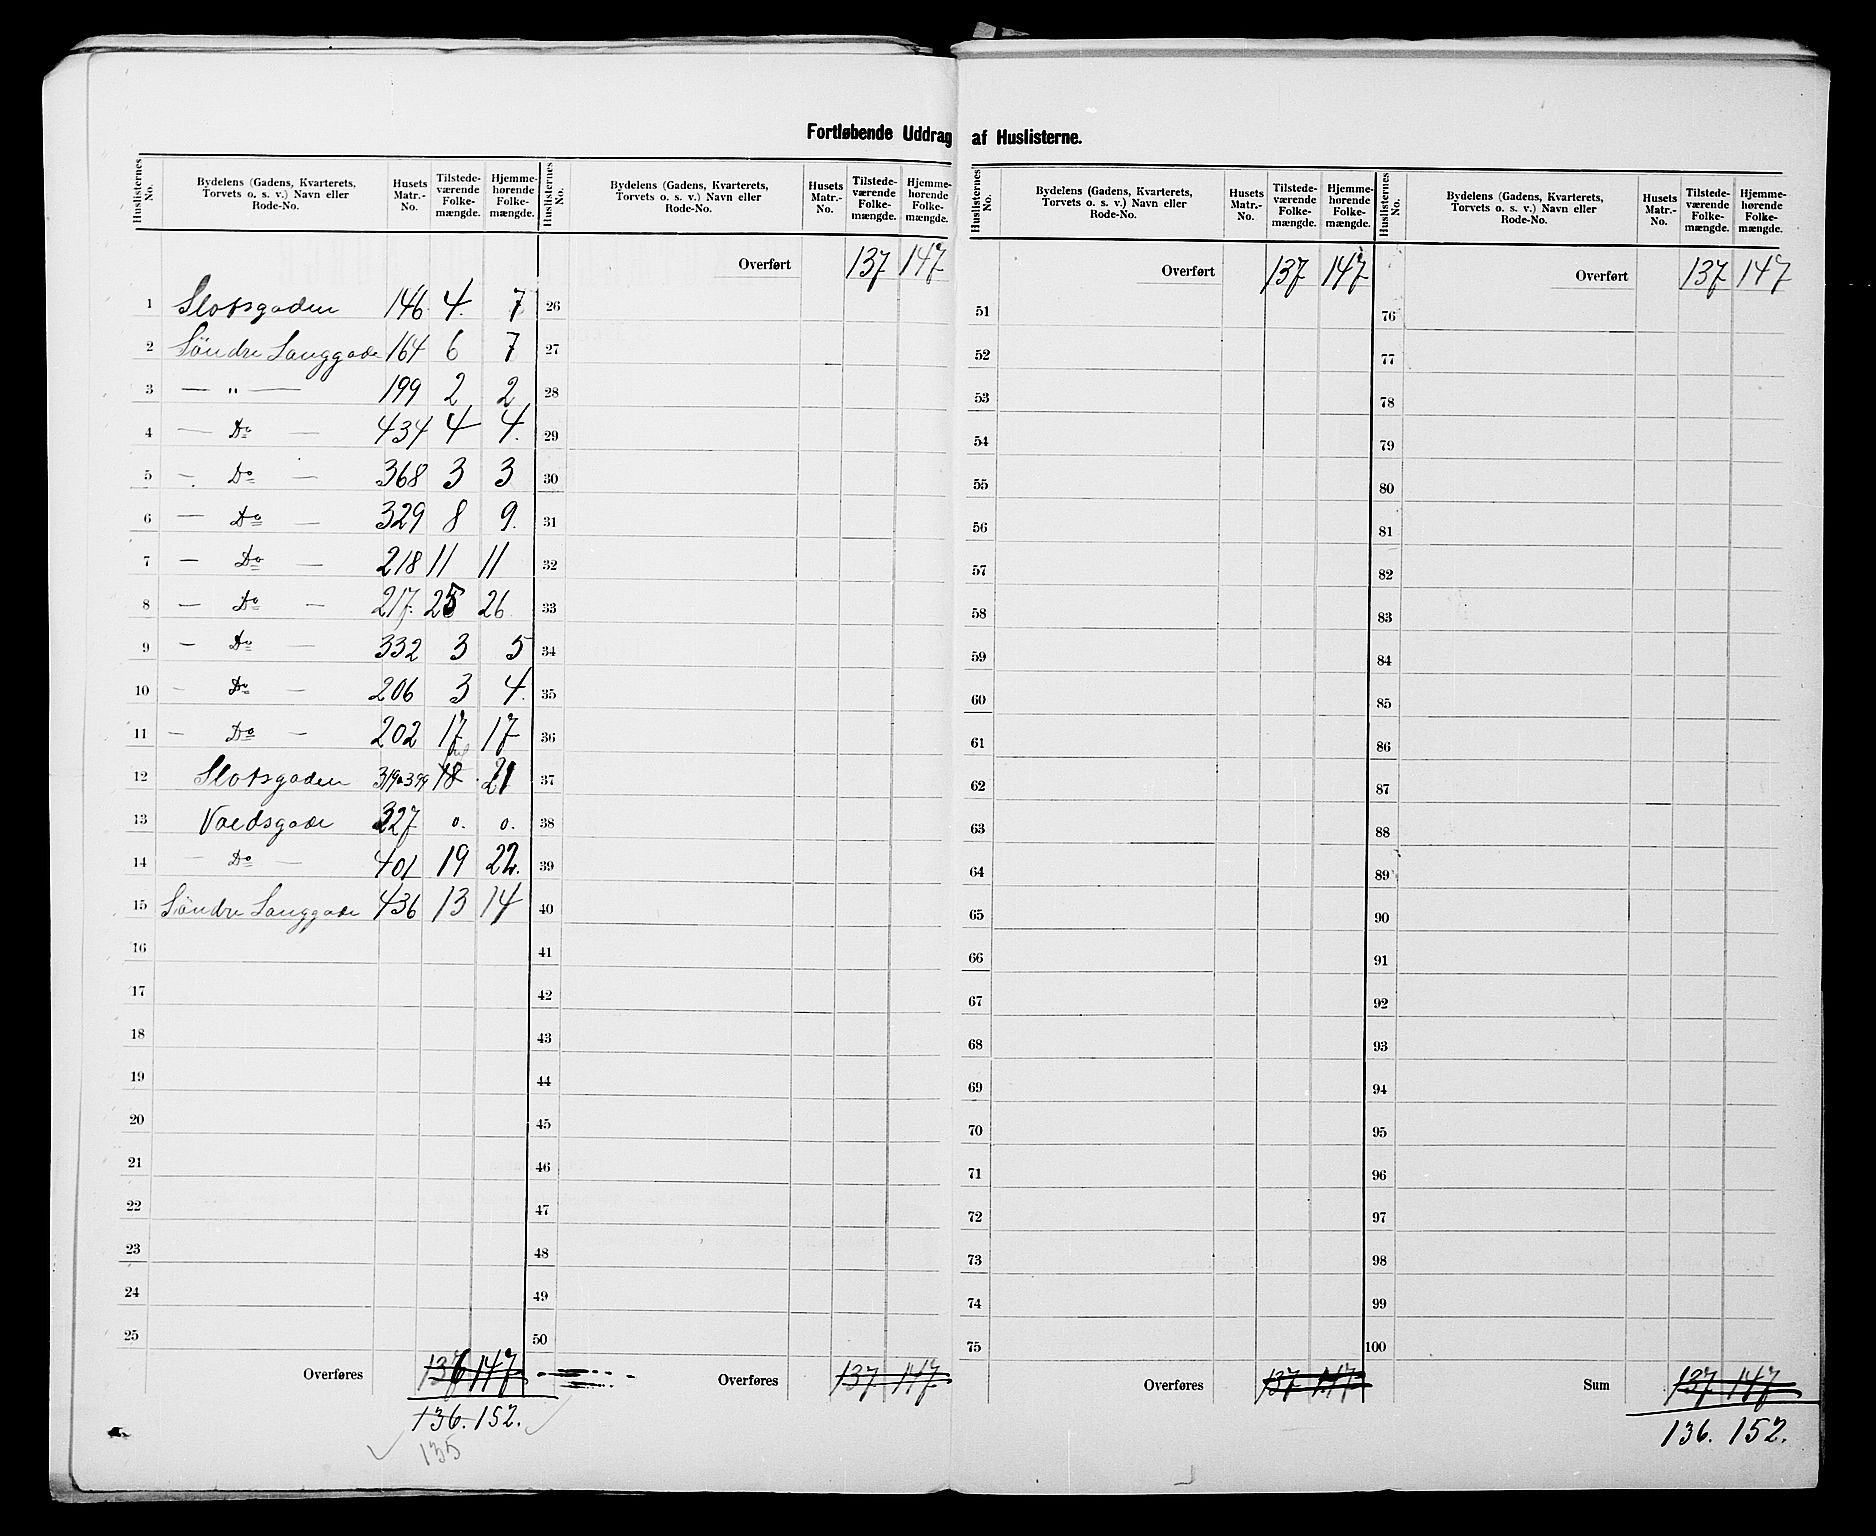 Fortløbende Uddrag af Huslisterne.
Huslisternes No. | Bydelens (Gadens, Kvarterets, Torvets o. s. v.) Navn eller Rode-No. | Husets Matr.-No. | Tilstedeværende Folkemængde. | Hjemmehørende Folkemængde.
Huslisternes No. | Bydelens (Gadens, Kvarterets, Torvets o. s. v.) Navn eller Rode-No. | Husets Matr.-No. | Tilstedeværende Folkemængde. | Hjemmehørende Folkemængde.
Huslisternes No. | Bydelens (Gadens, Kvarterets, Torvets o. s. v.) Navn eller Rode-No. | Husets Matr.-No. | Tilstedeværende Folkemængde. | Hjemmehørende Folkemængde.
Huslisternes No. | Bydelens (Gadens, Kvarterets, Torvets o. s. v.) Navn eller Rode-No. | Husets Matr.-No. | Tilstedeværende Folkemængde. | Hjemmehørende Folkemængde.
1 Slotsgaden 146 4. 7
2 Söndre Langgade 164 6 7
3 — " — 199 2 2
4 — Do — 434 4 4.
5 — Do — 368 3 3
6 — Do — 329 8 9.
7 — Do — 218 11 11
8 — Do — 217. 25 26
9 — Do — 332 3 5
10 — Do — 206 3 4.
11 — Do — 202 17 17
12 Slotsgaden 319a399 18 21
13 Voldsgade 327 0. 0.
14 — Do — 401 19 22.
15 Söndre Langgade 436 13 14
16
17
18
19
20
21
22
23
24
25
Overføres 137 147
136. 152.
135
Overført 137 147
26
27
28
29
30
31
32
33
34
35
36
37
38
39
40
41
42
43
44
45
46
47
48
49
50
Overføres 137 147
Overført 137 147
51
52
53
54
55
56
57
58
59
60
61
62
63
64
65
66
67
68
69
70
71
72
73
74
75
Overføres 137 147
Overført 137 147
76
77
78
79
80
81
82
83
84
85
86
87
88
89
90
91
92
93
94
95
96
97
98
99
100
Sum 137 147
136. 152.